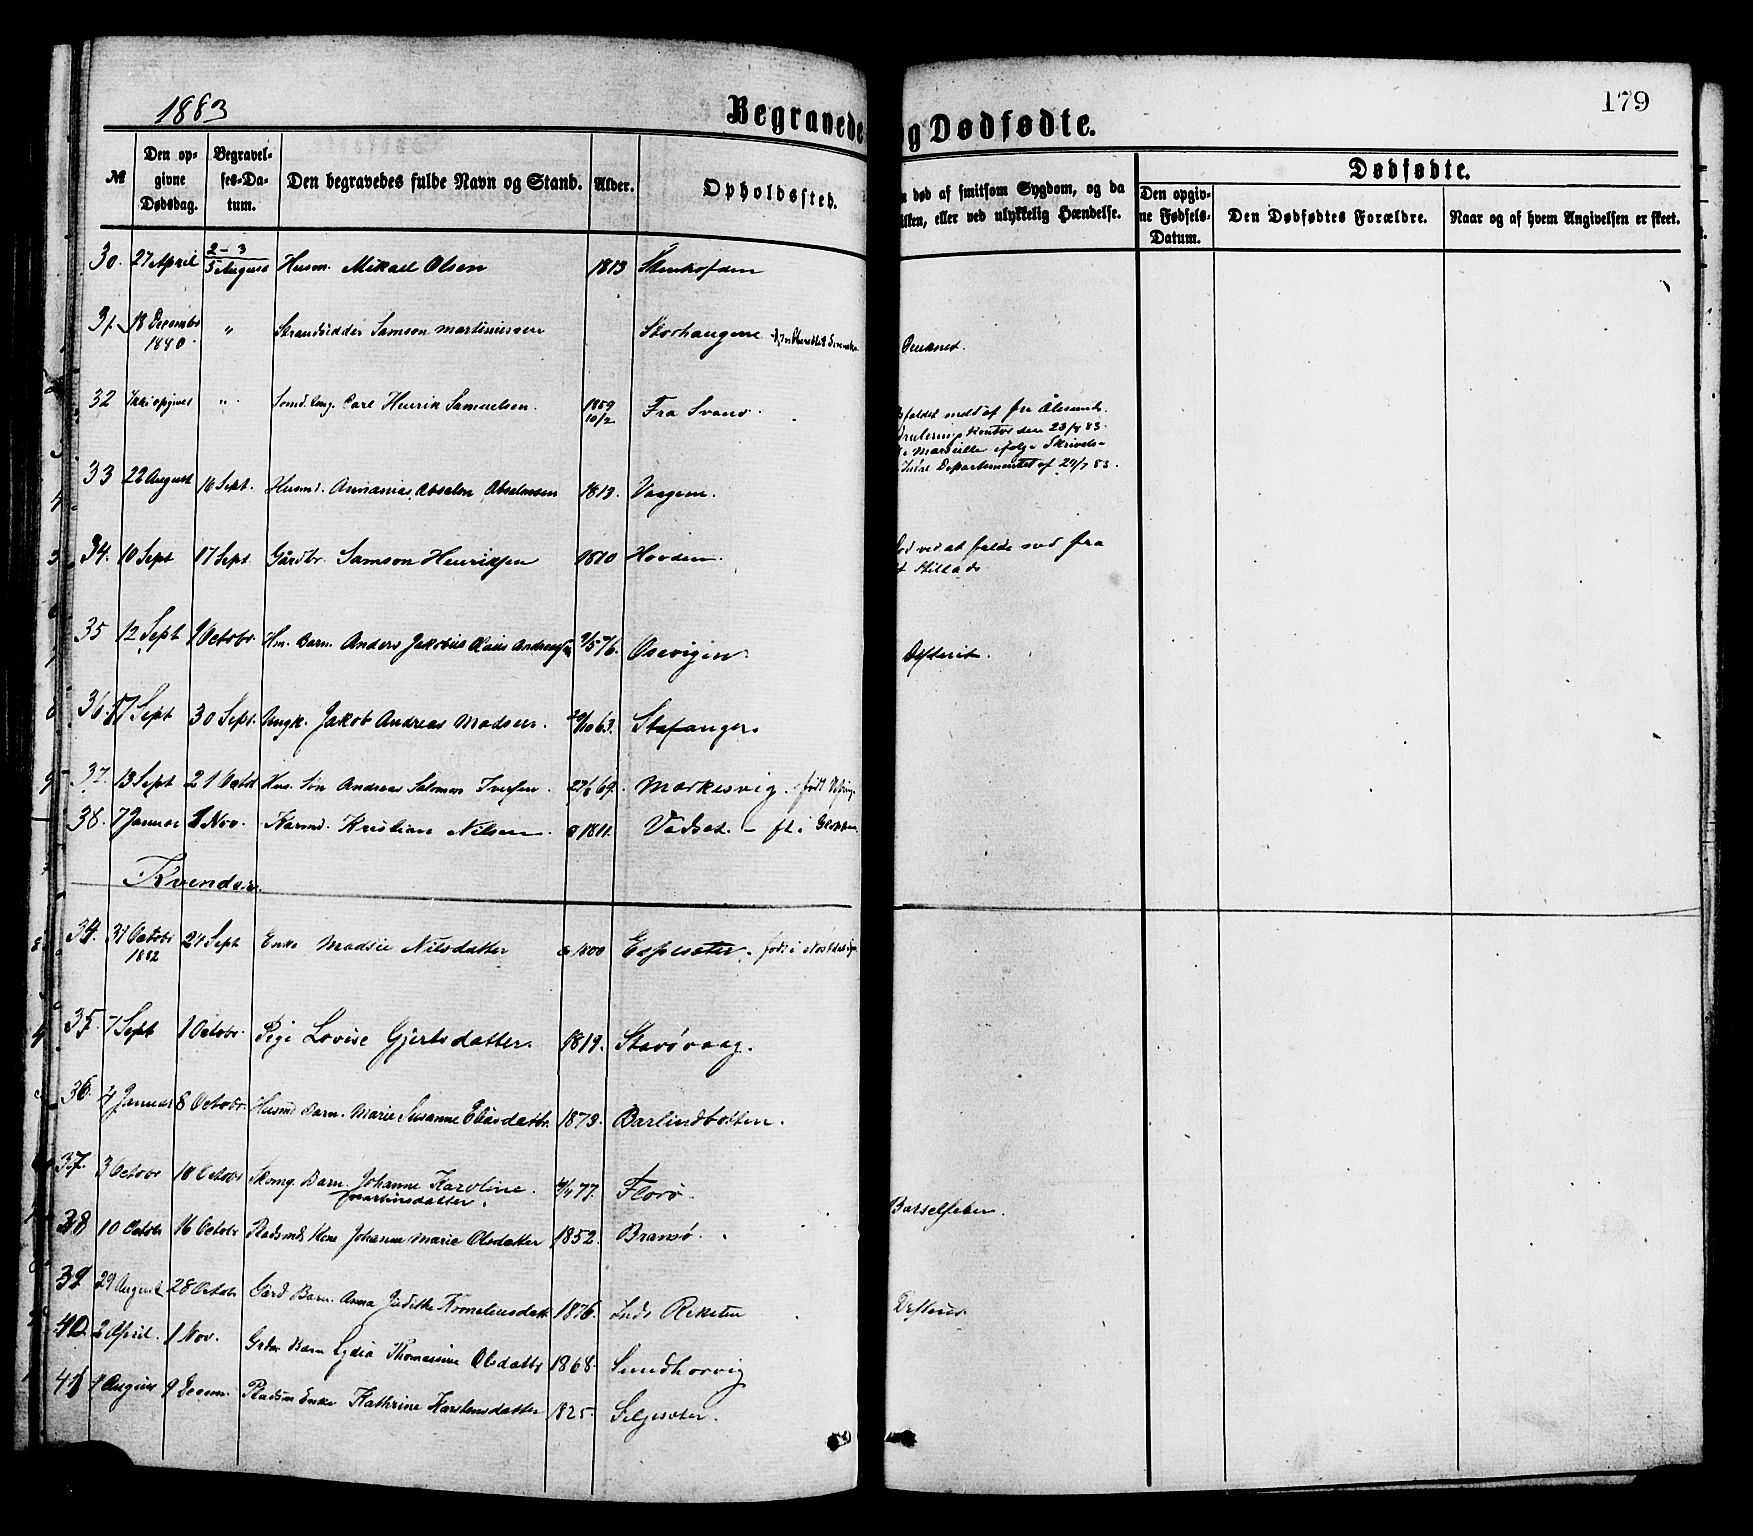 1883
Begravede
g Dødfødte.
179
№
Den opgivne Dødsdag.
Begravelses-Datum.
Den begravedes fulde Navn og Stand.
Alder.
Opholdssted.
død af smitsom Sygdom, og da
eller ved ulykkelig Hændelse.
Dødfødte.
Den opgivne Fødsels-Datum.
Den Dødfødtes Forældre.
Naar og af hvem Angivelsen er skeet.
30. 27 April 2-3 5 August Husm. Mikael Olsen 1813
31. 18 Decembr 1880. " Strandsidder Samson Martinussen Storhaugene Druknet.
32 Ikke opgivet " Carl Henrik Samuelsen. 1859 10/2 Fra Svanø.
den 23/8 83.
Marseille Skrivelse
Departementet af 24/7 83.
33 22 August 16 Sept. Husmd. Annanias Absalon Absalonsen 1813. Vaagene.
34. 10 Sept 17 Sept Gårdbr. Samson Henriksen 1810 Hovden.
ved at falde ned fra
et Stillads
35 12 Sept 1 Octobr. Hm. Barn. Anders Jakobus Claus Andreas 9/5 76. Osevigen. Difterit.
36. 17 Sept 30 Sept. Ungk. Jakob Andreas Madsen. 63. Stafanger.
37. 13 Sept 21 Octbr Hus. Søn Andreas Salomon Iversen. 27/6 69. Markesvig. født
38. 7 Januar 1 Nov. Kaarmd. Kristian Nilsen 1811. Vadset. ft i
Kvender.
34. 31 Octobr 1882 24 Sept Enke Madsie Nilsdatter 1800 Espesæter. født i
35. 7 Sept 1 Octobr. Pige Lovise Gjertsdatter. 1819. Stavøvaag.
36. 4 Januar 8 Octobr. Husmd Barn. Marie Susanne Eliasdattr. 1873. Barlindbotten.
37. 3 Octobr 10 Octobr Skomg. Barn. Johanne Karoline Martinsdatter. 77. Florø.
38 10 Octobr 16 Octobr Pladsmds Kone Johanne Marie Olsdatter 1852. Bransø. Barselfeber.
39. 29 August 28 Octobr Gård Barn. Anna Judithe Korneliusdatt 1876. Inds Reksten
40. 2 April. 1 Nov. Gdbr. Barn Lydia Thomasine Olsdattr 1868. Smidhorvig
41 1 August 9 Decem. Pladsm Enke Kathrine Karstensdatter 1825. Seljesæter.